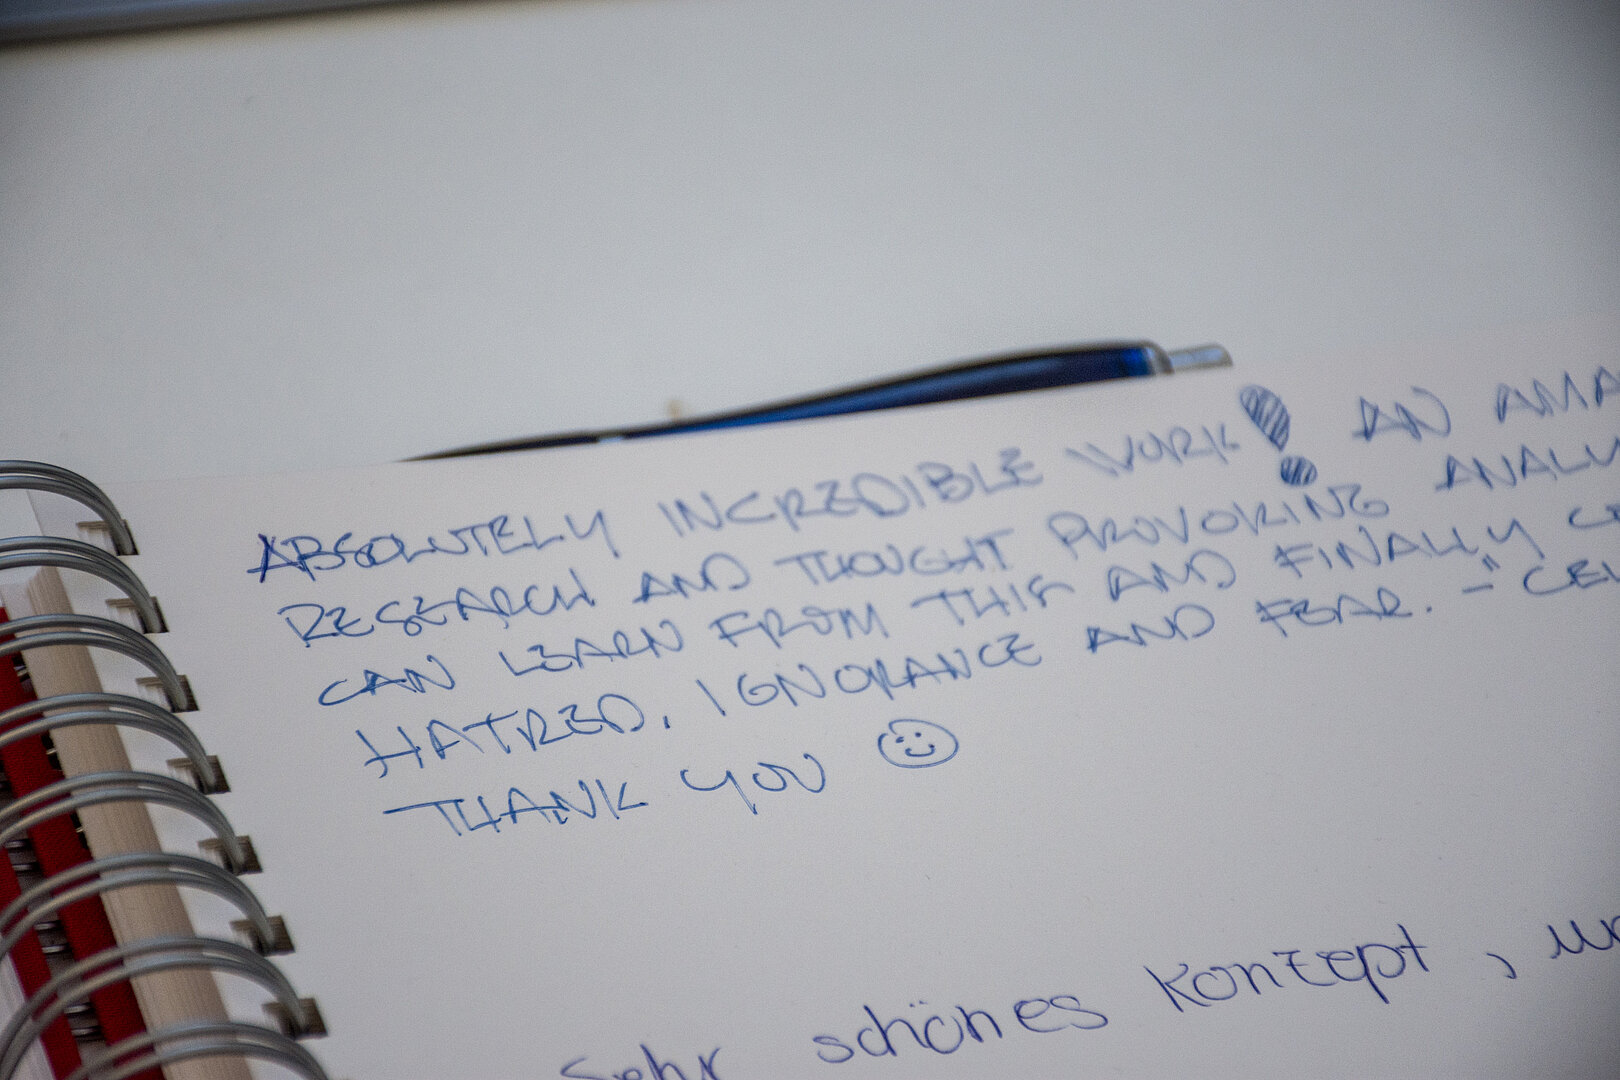 ABSOLUTELY INCREDIBLE WORK! AN
RESEARCH AND THOUGHT PROVOKING
CAN LEARN FROM THIS AND FINALLY
HATRED, IGNORANCE AND FEAR. -
THANK YOU ☺
Sehr schönes Konzept,